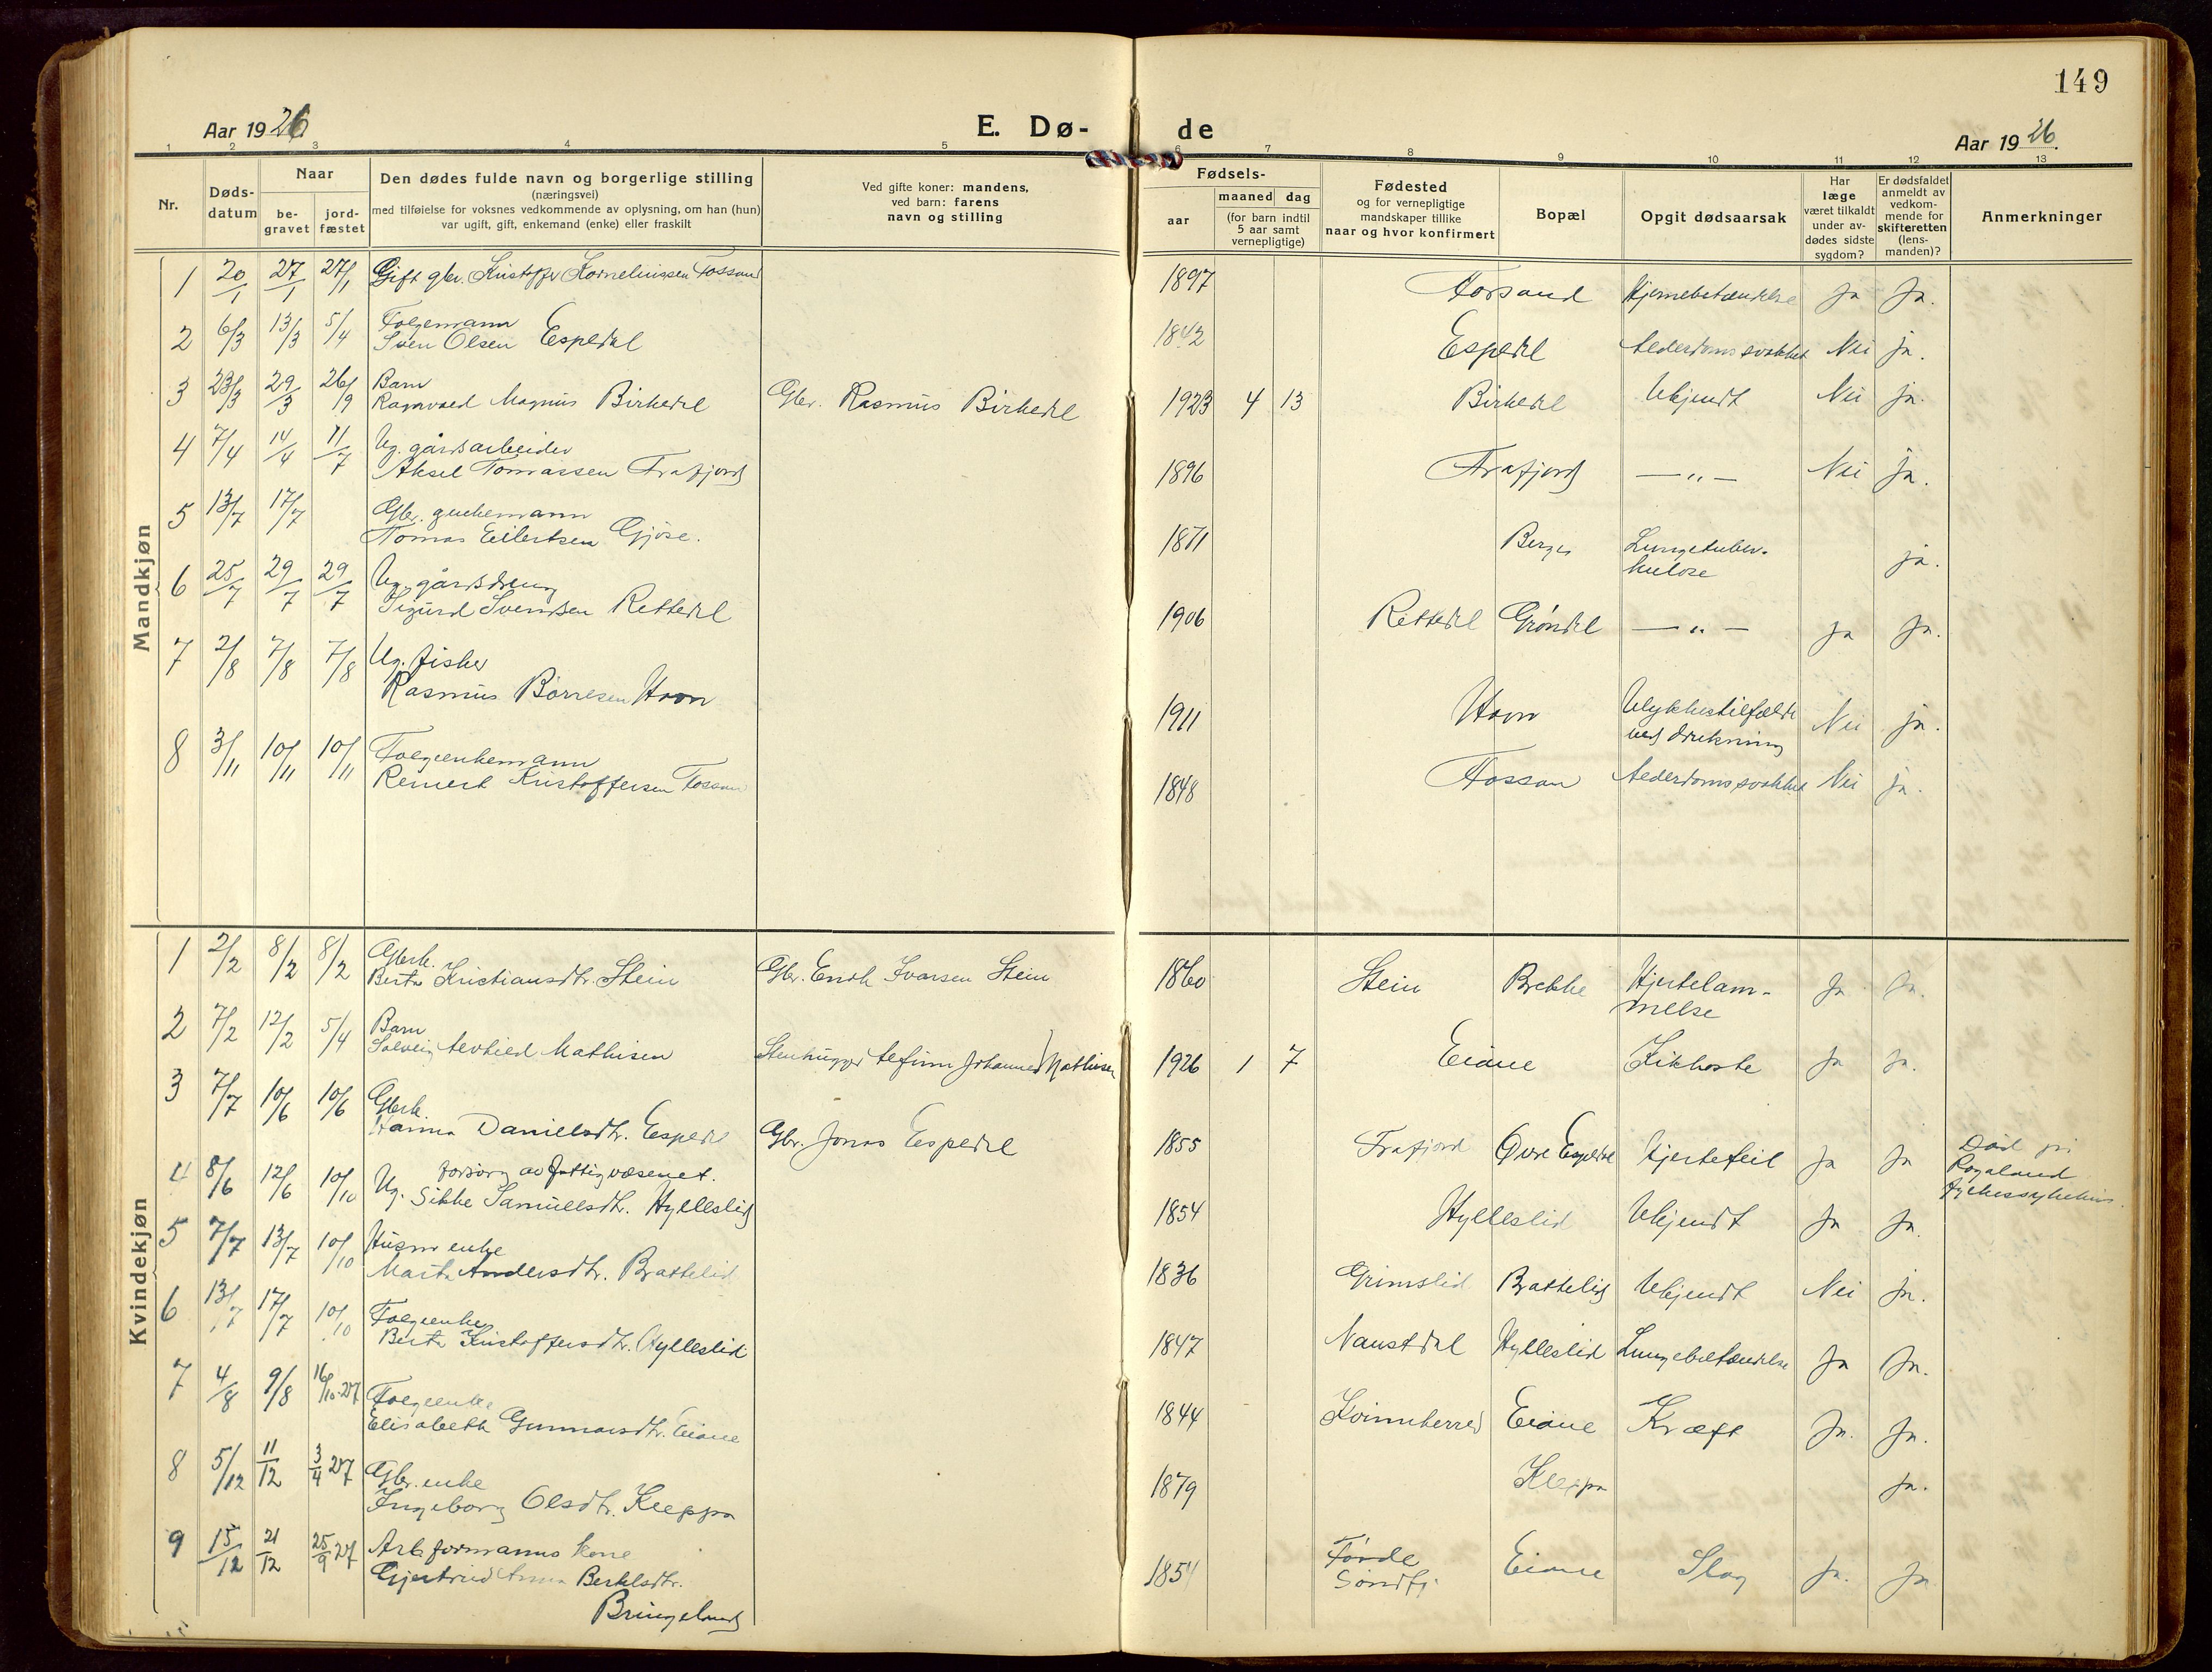 149
Aar 1926
E. Dø-
de
Aar 1926.
1 2 3 4 5 6 7 8 9 10 11 12 13
Nr.
Døds-
datum
Naar
be-
gravet
jord-
fæstet
Den dødes fulde navn og borgerlige stilling
(næringsvei)
med tilføielse for voksnes vedkommende av oplysning, om han (hun)
var ugift, gift, enkemand (enke) eller fraskilt
Ved gifte koner: mandens,
ved barn: farens
navn og stilling
Fødsels-
aar
maaned dag
(for barn indtil
5 aar samt
vernepligtige)
Fødested
og for vernepligtige
mandskaper tillike
naar og hvor konfirmert
Bopæl
Opgit dødsaarsak
Har
læge
været tilkaldt
under av-
dødes sidste
sygdom?
Er dødsfaldet
anmeldt av
vedkom-
mende for
skifteretten
(lens-
manden)?
Anmerkninger
Mandkjøn
1 20/1 27/1 27/1 Gift gbr. Kristoffer Kornelinssen Fossan 1897 Forsand Hjernebetændelse Ja Ja.
2 6/3 13/3 5/4 Folgemann
Sven Olsen Espedal 1842 Espedal Alderdomssvakhet Nei ja.
3 23/3 29/3 26/9 Barn
Ragnvald Magnus Birkedal Gbr. Rasmus Birkedal 1923 4 13 Birkedal Ukjendt Nei ja.
4 7/4 14/4 11/7 Ug. gårdsarbeider
Aksel Tomassen Frafjord 1896 Frafjord — " — Nei Ja.
5 13/7 17/7 Gbr. enkemann
Tomas Eilertsen Gjøse. 1871 Berge Lungetuber-
kulose ja.
6 25/7 29/7 29/7 Ug. gårdsdreng
Sigurd Svendsen Rettedal 1906 Rettedal Grøndal — " — ja Ja.
7 2/8 7/8 7/8 Ug. fisker
Rasmus Børresen Havn 1911 Havn Ulykkestilfælde
ved drukning Nei ja.
8 3/11 10/11 10/11 Folgeenkemann
Reinert Kristoffersen Fossan 1848 Fossan Alderdomssvakhet Nei ja.
Kvindekjøn
1 2/2 8/2 8/2 Gbrk.
Berta Kristiansdtr. Stein Gbr. Enok Ivarsen Stein 1860 Stein Brekke Hjertelam-
melse Ja Ja.
2 7/2 12/2 5/4 Barn
Solveig Alvhild Mathisen Stenhugger Alfinn Johannes Mathisen 1926 1 7 Eiane Kikhoste Ja Ja.
3 7/7 10/6 10/6 Gbrk.
Hanna Danielsdtr. Espedal Gbr. Jonas Espedal 1855 Frafjord Øvre Espedal Hjertefeil Ja Ja Død på
Rogaland
Fylkessykehus.
4 8/6 12/6 10/10 forsørg av fattigvæsenet.
Ug. Sikke Samuelsdtr. Hylleslid 1854 Hylleslid Ukjendt Ja Ja.
5 7/7 13/7 10/10 Husm enke
Marta Andersdtr. Brattelid 1836 Grimslid Brattelid Ukjendt Nei ja.
6 13/7 17/7 10/10 Folgeenke
Berta Kristoffersdtr. Hylleslid 1847 Naustdal Hylleslid Lungebetændelse Ja Ja.
7 4/8 9/8 16/10-27 Folgeenke
Elisabeth Gunnarsdtr. Eiane 1844 Kvinnherred Eiane Kræft Ja. Ja.
8 5/12 11/12 3/4 27 Gbr. enke
Ingeborg Olsdtr. Kleppa 1879 Kleppa Ja.
9 15/12 21/12 25/9 27 Arb formanns kone
Gjertrud Anna Bertelsdtr.
Bringeland 1854 Førde
Søndfj. Eiane Slag Ja. Ja